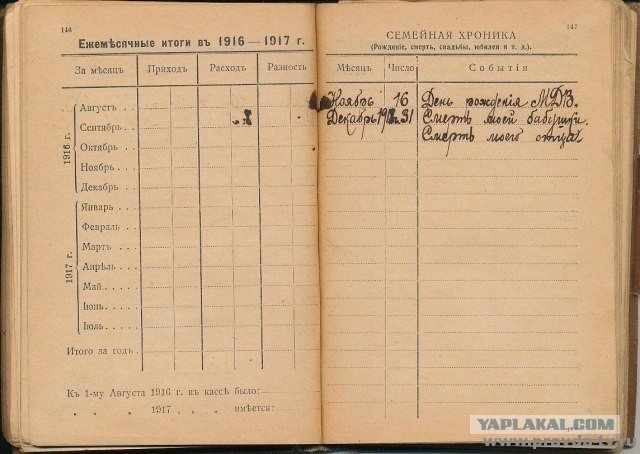 146
Ежемѣсячные итоги въ 1916—1917 г.
За мѣсяцъ Приходъ Расходъ Разность
1916 г.
Августъ
Сентябрь
Октябрь
Ноябрь
Декабрь
1917 г.
Январь
Февраль
Мартъ
Апрѣль
Май
Іюнь
Іюль
Итого за годъ
Къ 1-му Августа 1916 г. въ кассѣ было:
" " 1917 " имѣется:
147
СЕМЕЙНАЯ ХРОНИКА
(Рожденіе, смерть, свадьбы, юбилеи и т. д.).
Мѣсяцъ Число Событія
Ноябрь 16 День рожденія М.Д.В.
Декабрь 31 Смерть моей бабушки.
Смерть моего отца.
YAPLAKAL.COM
www.pravda-tv.ru